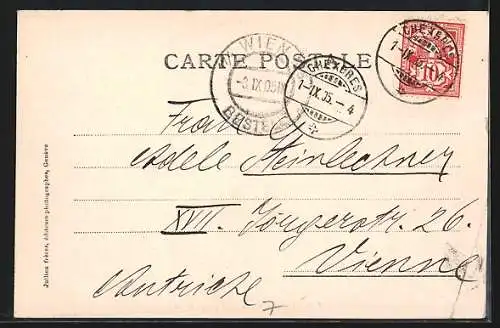 CARTE POSTALE
WIEN
-3.IX.05
BESTELLT
CHEXBRES
1-IX.05.-4
CHEXBRES
1-IX.
10
Frau
Adele Steinlechner
XVII. Jörgerstr. 26.
Vienne
Autriche
Jullien frères, éditeurs-photographes, Genève